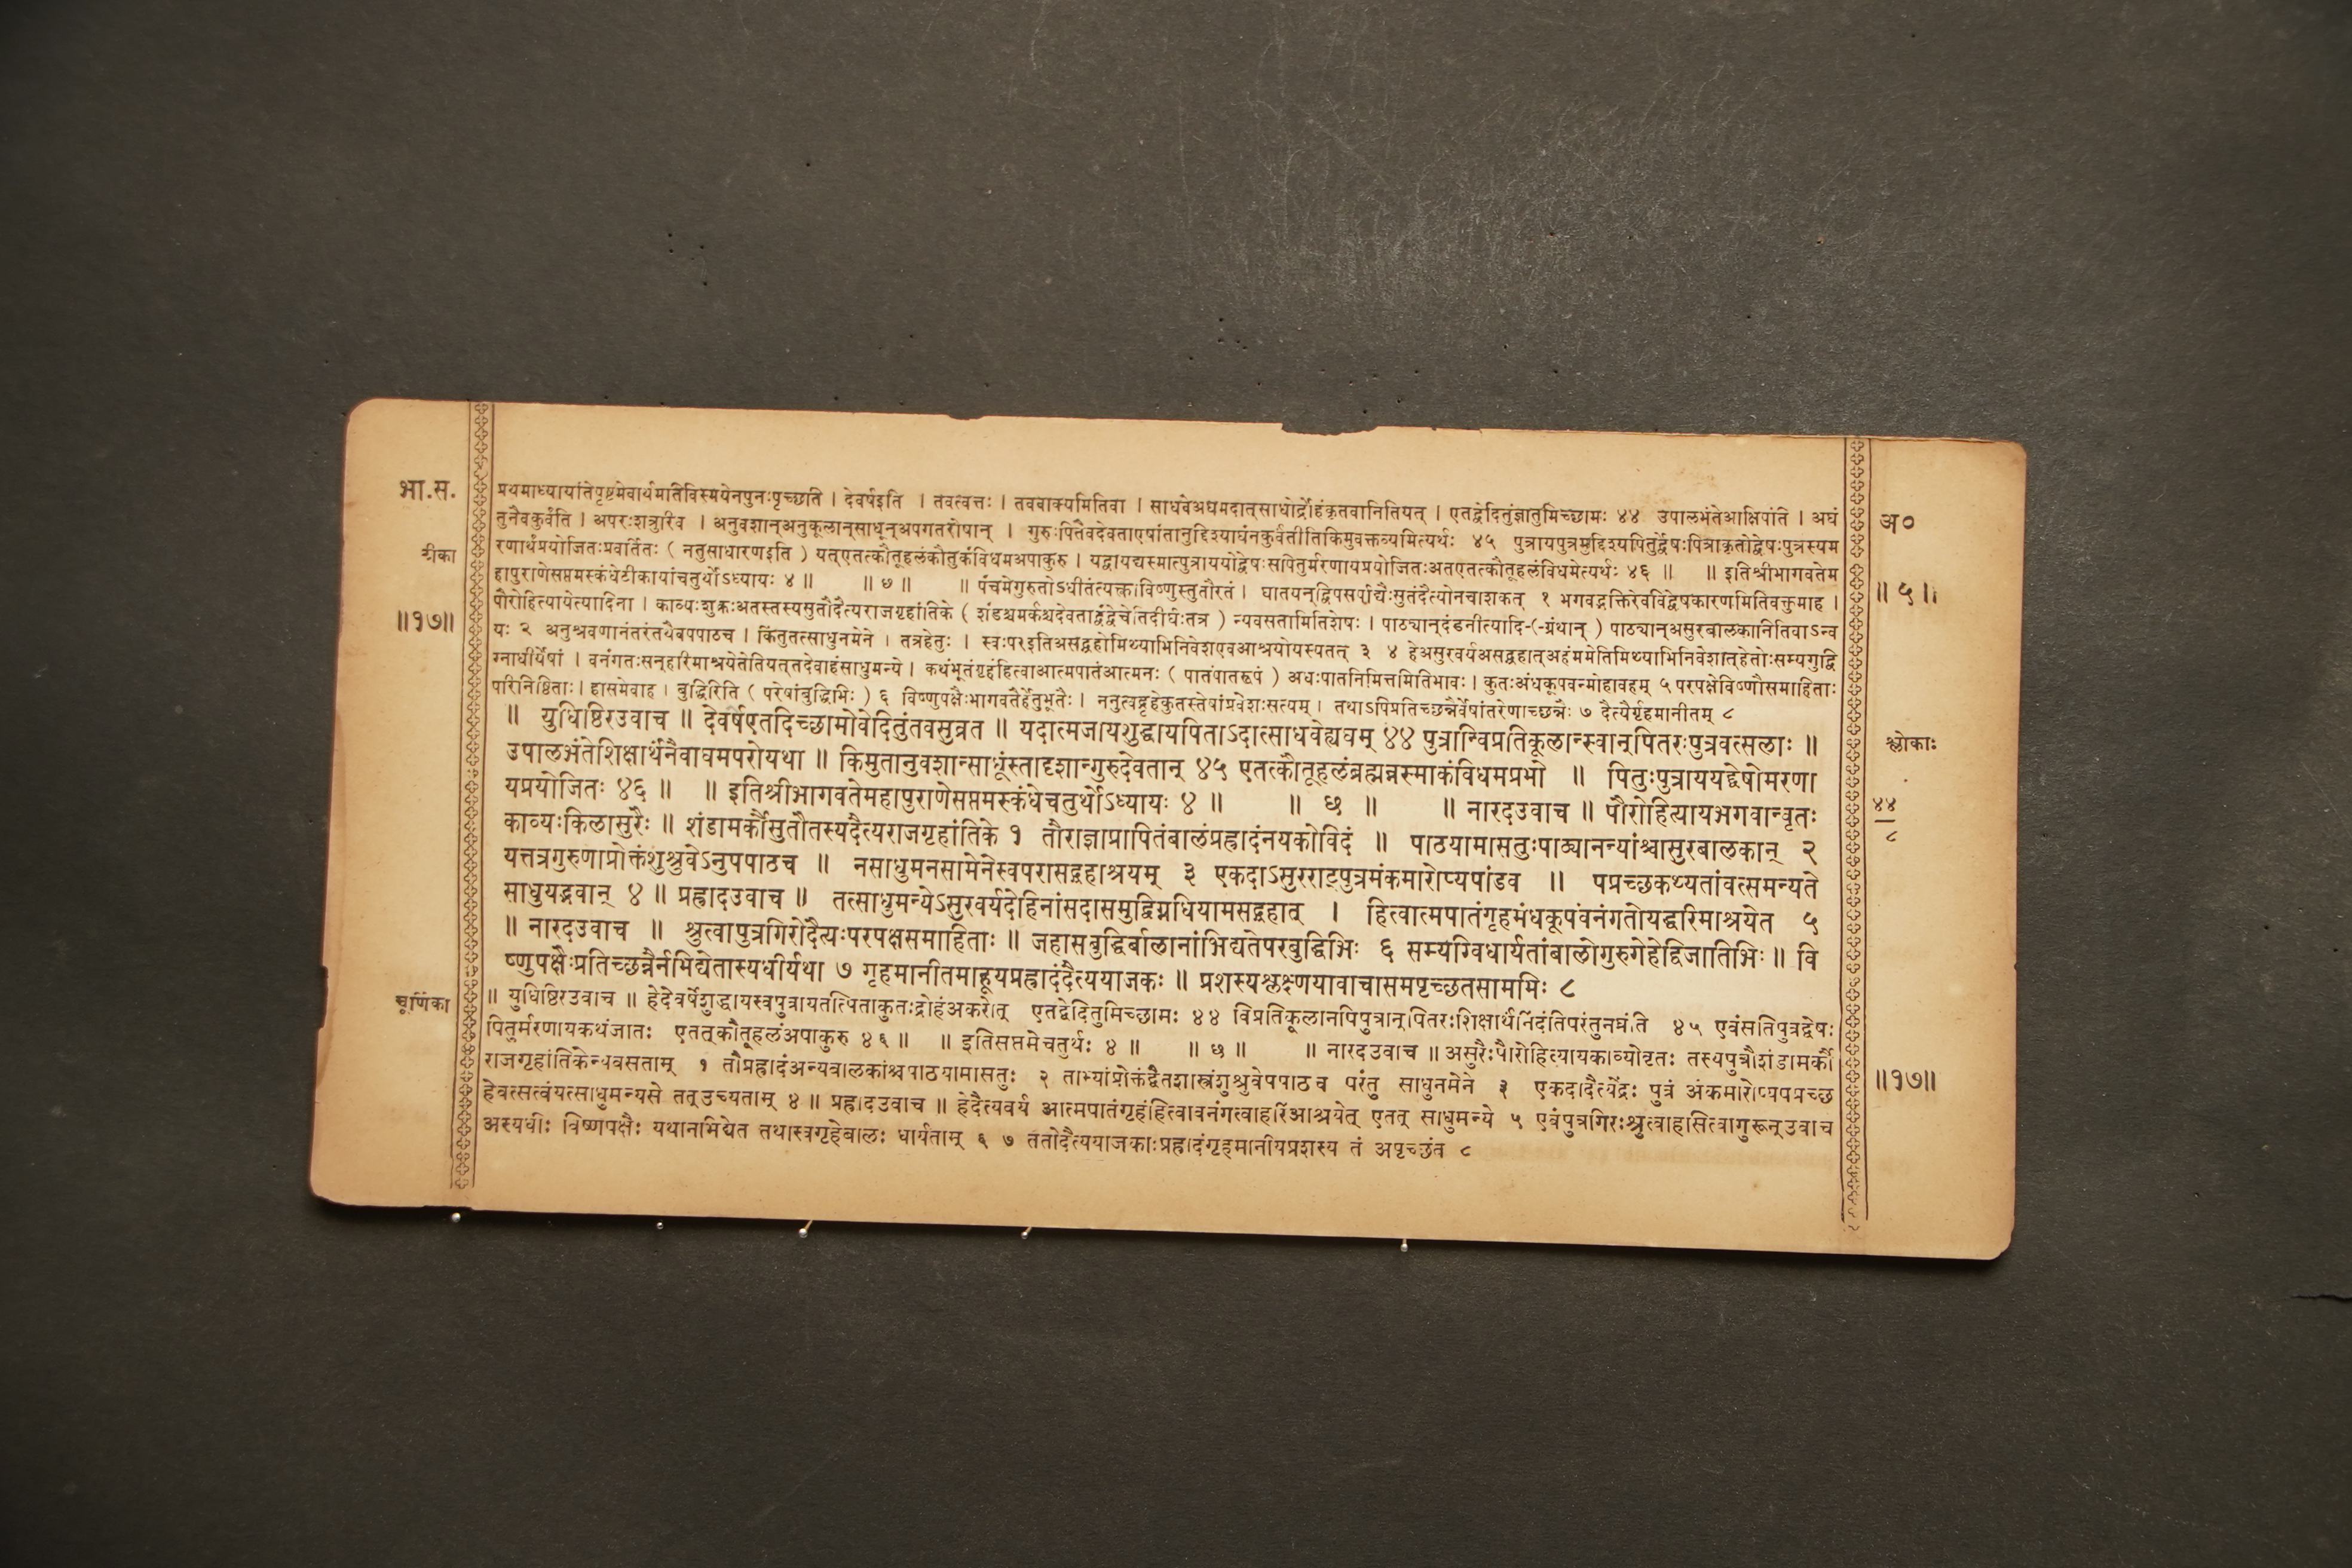 भा.स.
टीका
॥१७॥
प्रथमाध्यायांतेपृष्टमेवार्थमतिविस्मयेनपुनःपृच्छति । देवर्षइति । तवत्वत्तः । तववाक्यमितिवा । साधवेअघमदात्साधोर्द्रोहंकृतवानितियत् । एतद्वेदितुंज्ञातुमिच्छामः ४४ उपालभंतेआक्षिपंति । अघं
तुनैवकुर्वंति । अपरःशत्रुरिव । अनुवशान्अनुकूलान्साधून्अपगतरोषान् । गुरुःपितैवदेवताएषांतानुद्दिश्याघंनकुर्वंतीतिकिमुवक्तव्यमित्यर्थः ४५ पुत्रायपुत्रमुद्दिश्यपितुर्द्वेषःपित्राकृतोद्वेषःपुत्रस्यम
रणार्थंप्रयोजितःप्रवर्तितः ( नतुसाधारणइति ) यत्एतत्कौतूहलंकौतुकंविधमअपाकुरु । यद्वायद्यस्मात्पुत्राययोद्वेषःसपितुर्मरणायप्रयोजितःअतएतत्कौतूहलंविधमेत्यर्थः ४६ ॥ ॥ इतिश्रीभागवतेम
हापुराणेसप्तमस्कंधेटीकायांचतुर्थोऽध्यायः ४ ॥ ॥ ७ ॥ ॥ पंचमेगुरुतोऽधीतंत्यक्त्वाविष्णुस्तुतौरतं । घातयन्द्विपसर्पाद्यैःसुतंदैत्योनचाशकत् १ भगवद्भक्तिरेवविद्वेषकारणमितिवक्तुमाह ।
पौरोहित्यायेत्यादिना । काव्यःशुक्रःअतस्तस्यसुतौदैत्यराजगृहांतिके ( शंडश्चमर्कश्चदेवताद्वंद्वेचेतिदीर्घःतत्र ) न्यवसतामितिशेषः । पाठ्यान्दंडनीत्यादि-(-ग्रंथान् ) पाठ्यान्असुरबालकानितिवाऽन्व
यः २ अनुश्रवणानंतरंतथैवपपाठच । किंतुतत्साधुनमेने । तत्रहेतुः । स्वःपरइतिअसद्ग्रहोमिथ्याभिनिवेशएवआश्रयोयस्यतत् ३ ४ हेअसुरवर्यअसद्ग्रहात्अहंममेतिमिथ्याभिनिवेशात्हेतोःसम्यगुद्वि
ग्नाधीर्येषां । वनंगतःसन्हरिमाश्रयेतेतियत्तदेवाहंसाधुमन्ये । कथंभूतंगृहंहित्वाआत्मपातंआत्मनः ( पातंपातरूपं ) अधःपातनिमित्तमितिभावः । कुतःअंधकूपवन्मोहावहम् ५ परपक्षेविष्णौसमाहिताः
परिनिष्ठिताः । हासमेवाह । बुद्धिरिति ( परेषांबुद्धिभिः ) ६ विष्णुपक्षैःभागवतैर्हेतुभूतैः । ननुत्वद्गृहेकुतस्तेषांप्रवेशःसत्यम् । तथाऽपिप्रतिच्छन्नैर्वेषांतरेणाच्छन्नैः ७ दैत्यैर्गृहमानीतम् ८
॥ युधिष्ठिरउवाच ॥ देवर्षएतदिच्छामोवेदितुंतवसुव्रत ॥ यदात्मजायशुद्धायपिताऽदात्साधवेह्यघम् ४४ पुत्रान्विप्रतिकूलान्स्वान्पितरःपुत्रवत्सलाः ॥
उपालभंतेशिक्षार्थंनैवाघमपरोयथा ॥ किमुतानुवशान्साधूंस्तादृशान्गुरुदेवतान् ४५ एतत्कौतूहलंब्रह्मन्नस्माकंविधमप्रभो ॥ पितुःपुत्राययद्द्वेषोमरणा
यप्रयोजितः ४६ ॥ ॥ इतिश्रीभागवतेमहापुराणेसप्तमस्कंधेचतुर्थोऽध्यायः ४ ॥ ॥ छ ॥ ॥ नारदउवाच ॥ पौरोहित्यायभगवान्वृतः
काव्यःकिलासुरैः ॥ शंडामर्कौसुतौतस्यदैत्यराजगृहांतिके १ तौराज्ञाप्रापितंबालंप्रह्लादंनयकोविदं ॥ पाठयामासतुःपाठ्यानन्यांश्चासुरबालकान् २
यत्तत्रगुरुणाप्रोक्तंशुश्रुवेऽनुपपाठच ॥ नसाधुमनसामेनेस्वपरासद्ग्रहाश्रयम् ३ एकदाऽसुरराट्पुत्रमंकमारोप्यपांडव ॥ पप्रच्छकथ्यतांवत्समन्यते
साधुयद्भवान् ४ ॥ प्रह्लादउवाच ॥ तत्साधुमन्येऽसुरवर्यदेहिनांसदासमुद्विग्नधियामसद्ग्रहात् । हित्वात्मपातंगृहमंधकूपंवनंगतोयद्धरिमाश्रयेत ५
॥ नारदउवाच ॥ श्रुत्वापुत्रगिरोदैत्यःपरपक्षसमाहिताः ॥ जहासबुद्धिर्बालानांभिद्यतेपरबुद्धिभिः ६ सम्यग्विधार्यतांबालोगुरुगेहेद्विजातिभिः ॥ वि
ष्णुपक्षैःप्रतिच्छन्नैर्नभिद्येतास्यधीर्यथा ७ गृहमानीतमाहूयप्रह्लादंदैत्ययाजकः ॥ प्रशस्यश्लक्ष्णयावाचासमपृच्छतसामभिः ८
चूर्णिका
॥ युधिष्ठिरउवाच ॥ हेदेवर्षेशुद्धायस्वपुत्रायतत्पिताकुतःद्रोहंअकरोत् एतद्वेदितुमिच्छामः ४४ विप्रतिकूलानपिपुत्रान्पितरःशिक्षार्थंनिंदंतिपरंतुनघ्नंति ४५ एवंसतिपुत्रद्वेषः
पितुर्मरणायकथंजातः एतत्कौतूहलंअपाकुरु ४६ ॥ ॥ इतिसप्तमेचतुर्थः ४ ॥ ॥ छ ॥ ॥ नारदउवाच ॥ असुरैःपौरोहित्यायकाव्योवृतः तस्यपुत्रौशंडामर्कौ
राजगृहांतिकेन्यवसताम् १ तौप्रह्लादंअन्यबालकांश्चपाठयामासतुः २ ताभ्यांप्रोक्तंद्वैतशास्त्रंशुश्रुवेपपाठच परंतु साधुनमेने ३ एकदादैत्येंद्रः पुत्रं अंकमारोप्यपप्रच्छ
हेवत्सत्वंयत्साधुमन्यसे तत्उच्यताम् ४ ॥ प्रह्लादउवाच ॥ हेदैत्यवर्य आत्मपातंगृहंहित्वावनंगत्वाहरिंआश्रयेत् एतत् साधुमन्ये ५ एवंपुत्रगिरःश्रुत्वाहसित्वागुरून्उवाच
अस्यधीः विष्णपक्षैः यथानभिद्येत तथास्वगृहेबालः धार्यताम् ६ ७ ततोदैत्ययाजकाःप्रह्लादंगृहमानीयप्रशस्य तं अपृच्छंत ८
अ०
॥ ५ ॥
श्लोकाः
४४
८
॥१७॥